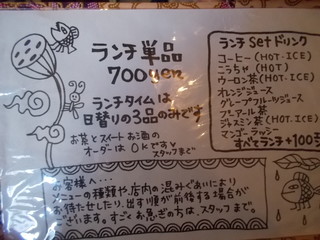 ランチ単品
700yen
ランチタイムは
日替りの3品のみです
お茶とスイートお酒の
オーダーは OKですよ
スタッフまで
ランチ Set ドリンク
コーヒー (HOT・ICE)
こうちゃ (HOT)
ウーロン茶 (HOT・ICE)
オレンジジュース
グレープフルーツジュース
プーアール茶 (HOT・ICE)
ジャスミン茶 (HOT・ICE)
マンゴーラッシー
すべてランチ+100
お客様へ…
メニューの種類や店内の混みぐあいにより
お待たせしたり、出す順が前後する場合が
ございます。すごくお急ぎの方は、スタッフまで。